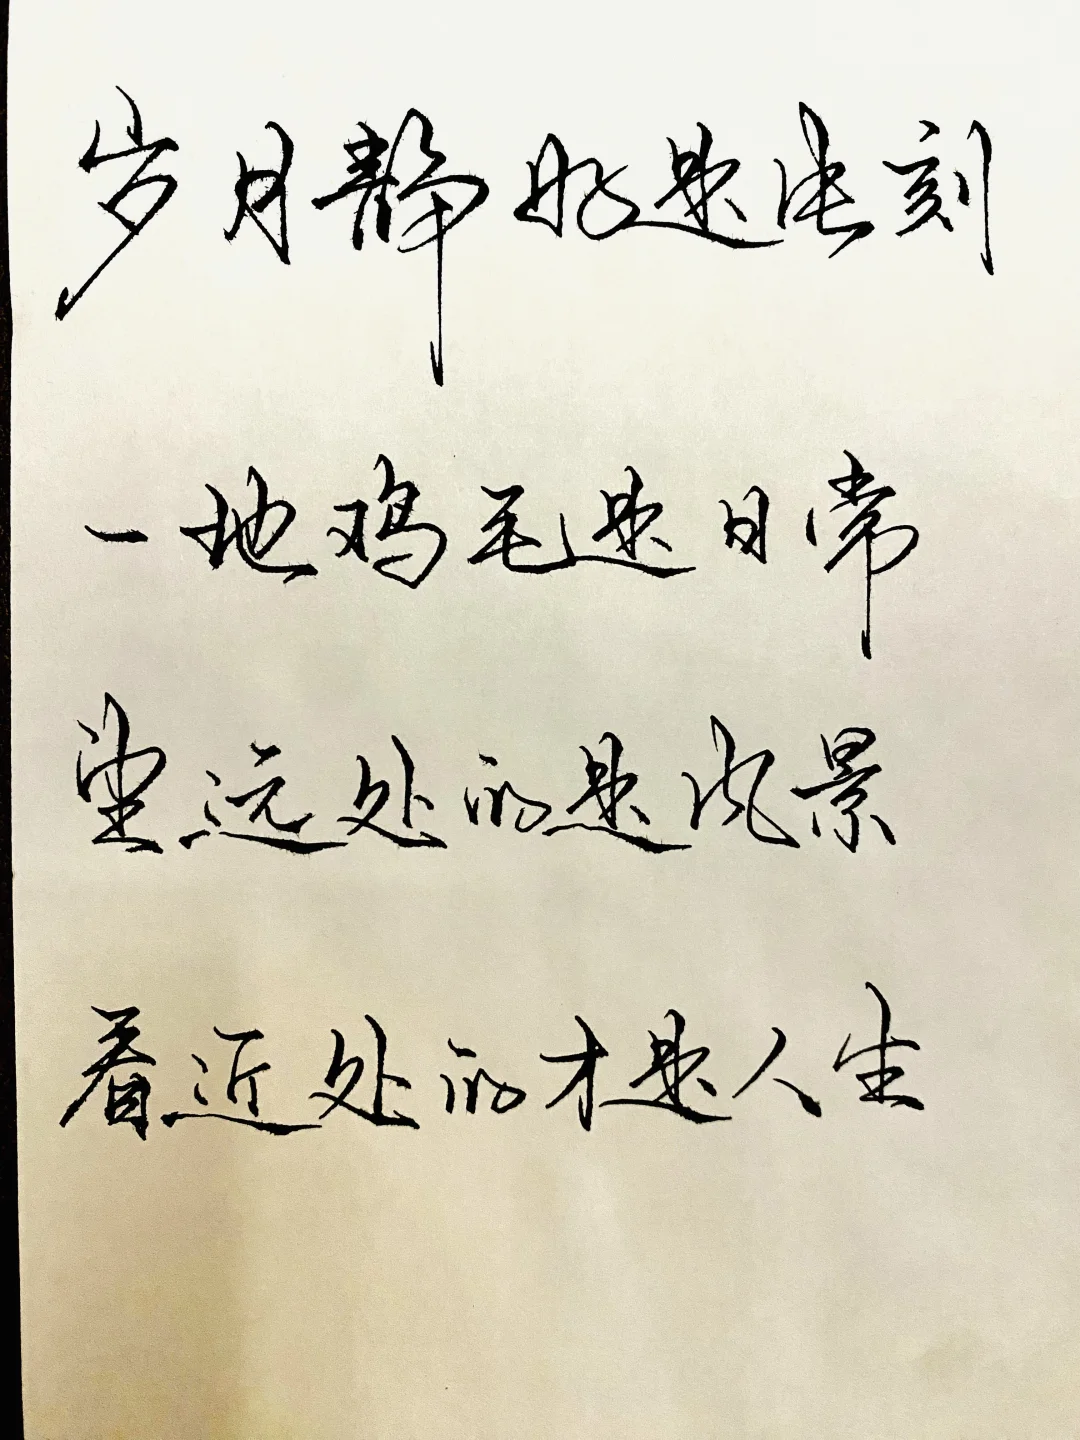 岁月静好是刻
一地鸡毛是日常
望远处的是风景
看近处的才是人生